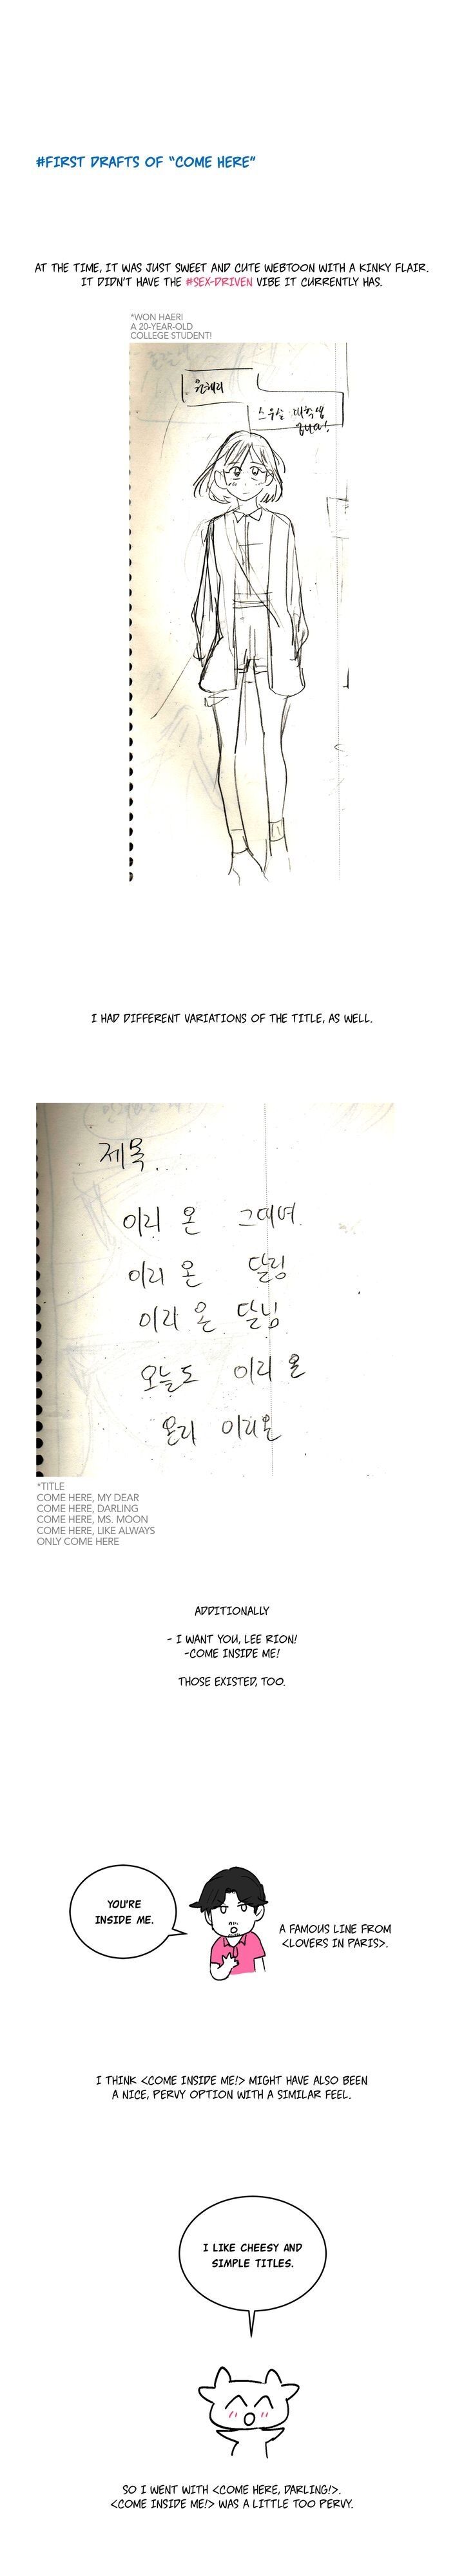 #FIRST DRAFTS OF "COME HERE"
AT THE TIME, IT WAS JUST SWEET AND CUTE WEBTOON WITH A KINKY FLAIR.
IT DIDN'T HAVE THE #SEX-DRIVEN VIBE IT CURRENTLY HAS.
*WON HAERI
A 20-YEAR-OLD
COLLEGE STUDENT!
원해리
스무살 대학생
입니다!
I HAD DIFFERENT VARIATIONS OF THE TITLE, AS WELL.
제목..
이리 온 그대여.
이리 온 달링
이리 온 달님
오늘도 이리 온
온리 이리온
*TITLE
COME HERE, MY DEAR
COME HERE, DARLING
COME HERE, MS. MOON
COME HERE, LIKE ALWAYS
ONLY COME HERE
ADDITIONALLY
- I WANT YOU, LEE RION!
-COME INSIDE ME!
THOSE EXISTED, TOO.
YOU'RE
INSIDE ME.
A FAMOUS LINE FROM
<LOVERS IN PARIS>.
I THINK <COME INSIDE ME!> MIGHT HAVE ALSO BEEN
A NICE, PERVY OPTION WITH A SIMILAR FEEL.
I LIKE CHEESY AND
SIMPLE TITLES.
SO I WENT WITH <COME HERE, DARLING!>.
<COME INSIDE ME!> WAS A LITTLE TOO PERVY.